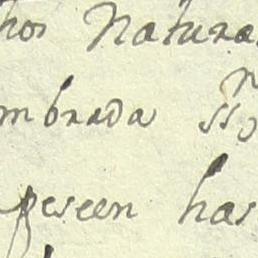 hos Natura
mbrada
peseen has